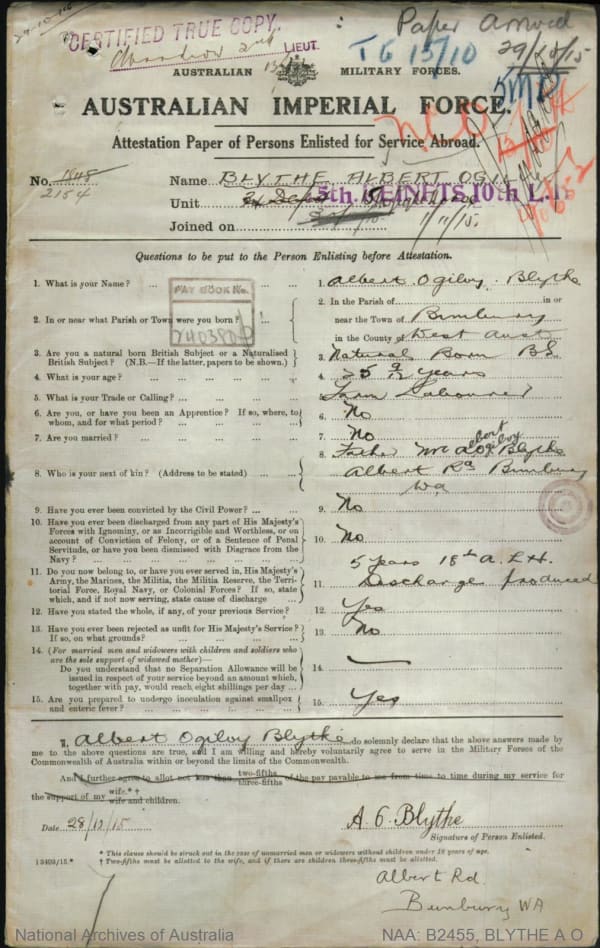 CERTIFIED TRUE COPY.
LIEUT.
Paper Arrived
TG 15/10
29/10/15
AUSTRALIAN MILITARY FORCES.
AUSTRALIAN IMPERIAL FORCE.
Attestation Paper of Persons Enlisted for Service Abroad.
No. 1848
2154
Name BLYTHE ALBERT OGILBY
Unit 5th REINFTS 10th L.H.
Joined on 1/11/15.
Questions to be put to the Person Enlisting before Attestation.
PAY BOOK No.
1. What is your Name? ... 1. Albert Ogilby Blythe
2. In or near what Parish or Town were you born? ... 2. In the Parish of in or
near the Town of Bunbury
in the County of West Aust
3. Are you a natural born British Subject or a Naturalised
British Subject? (N.B.—If the latter, papers to be shown.) 3. Natural Born B.S.
4. What is your age? ... 4. 25 9/12 years
5. What is your Trade or Calling? ... 5. Farm Labourer
6. Are you, or have you been an Apprentice? If so, where, to
whom, and for what period? ... 6. No
7. Are you married? ... 7. No
8. Who is your next of kin? (Address to be stated) ... 8. Father Mr Albert Ogilby Blythe
Albert Rd Bunbury
WA
9. Have you ever been convicted by the Civil Power? ... 9. No
10. Have you ever been discharged from any part of His Majesty's
Forces with Ignominy, or as Incorrigible and Worthless, or on
account of Conviction of Felony, or of a Sentence of Penal
Servitude, or have you been Dismissed with Disgrace from the
Navy? ... 10. No
11. Do you now belong to, or have you ever served in, His Majesty's
Army, the Marines, the Militia, the Militia Reserve, the Terri-
torial Force, Royal Navy, or Colonial Forces? If so, state
which, and if not now serving, state cause of discharge 11. 5 years 18th A.L.H.
Discharge produced
12. Have you stated the whole, if any, of your previous Service? 12. Yes
13. Have you ever been rejected as unfit for His Majesty's Service?
If so, on what grounds? ... 13. No
14. (For married men and widowers with children and soldiers who
are the sole support of widowed mother)—
Do you understand that no Separation Allowance will be
issued in respect of your service beyond an amount which,
together with pay, would reach eight shillings per day ... 14. —
15. Are you prepared to undergo inoculation against smallpox
and enteric fever? ... 15. Yes
I, Albert Ogilby Blythe do solemnly declare that the above answers made by
me to the above questions are true, and I am willing and hereby voluntarily agree to serve in the Military Forces of the
Commonwealth of Australia within or beyond the limits of the Commonwealth.
And I further agree to allot not less than two-fifths three-fifths of the pay payable to me from time to time during my service for
the support of my wife.*† wife and children.
Date 28/10/15
A. O. Blythe
Signature of Person Enlisted.
* This clause should be struck out in the case of unmarried men or widowers without children under 18 years of age.
† Two-fifths must be allotted to the wife, and if there are children three-fifths must be allotted.
Albert Rd.
Bunbury WA
National Archives of Australia
NAA: B2455, BLYTHE A O